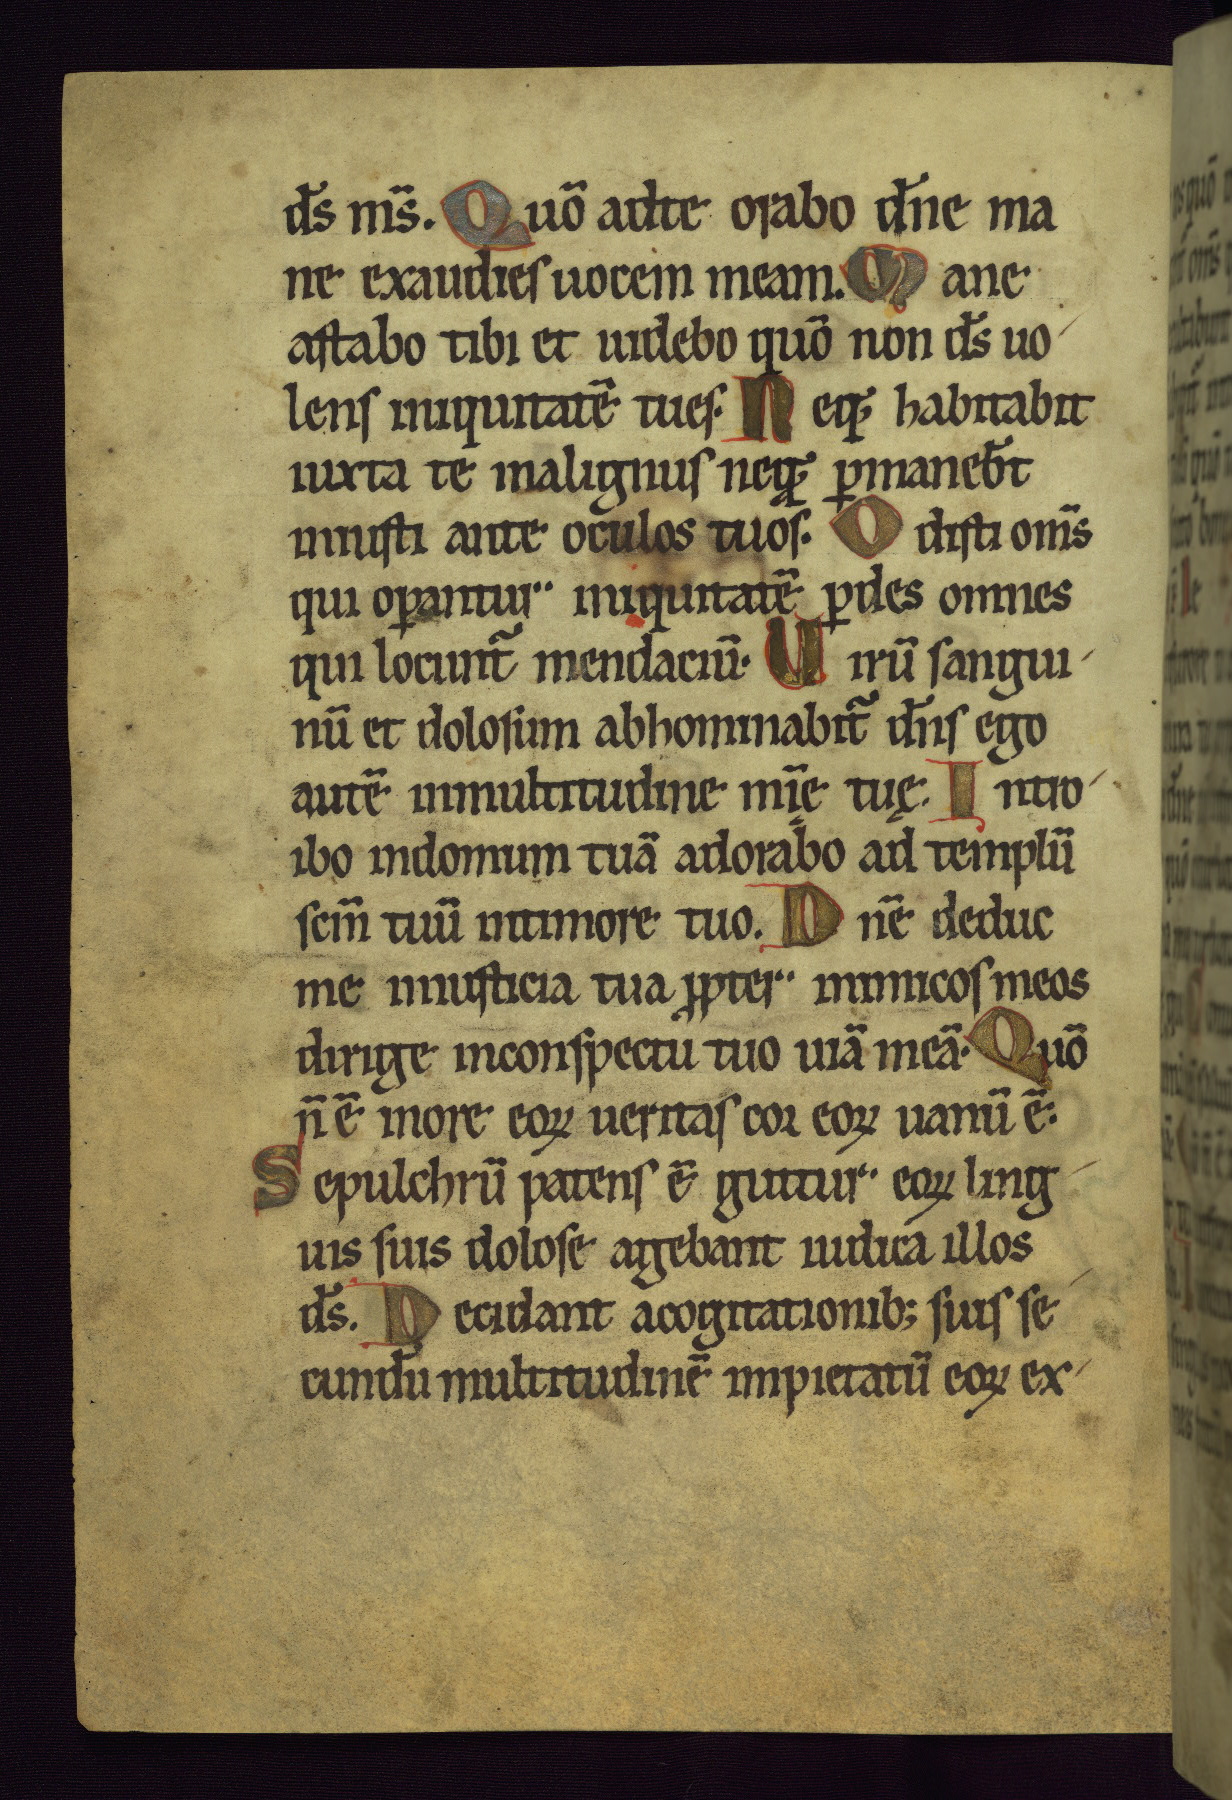 ds̄ ms̄. Quō adte orabo dn̄e ma
ne exaudies uocem meam. Mane
astabo tibi et uidebo quō non ds̄ uo
lens iniquitatē tues. Neq; habitabit
iuxta te malignus neq; ꝑmaneb̄t
iniusti ante oculos tuos. Odisti om̄s
qui oꝑantur iniquitatē ꝑdes omnes
qui locunt᷑ mendaciū. Uirū sangui
nū et dolosum abhominabit᷑ dn̄s ego
autē inmultitudine mīę tuę. Intro
ibo indomum tuā adorabo ad templū
scm̄ tuū intimore tuo. Dn̄e deduc
me iniusticia tua ꝓpter inimicos meos
dirige inconspectu tuo uiā meā. Quō
n̄ ē inore eoꝝ ueritas cor eoꝝ uanū ē.
Sepulchrū patens ē guttur eoꝝ ling
uis suis dolose agebant iudica illos
ds̄. Decidant acogitationib; suis se
cundū multitudinē impietatū eoꝝ ex